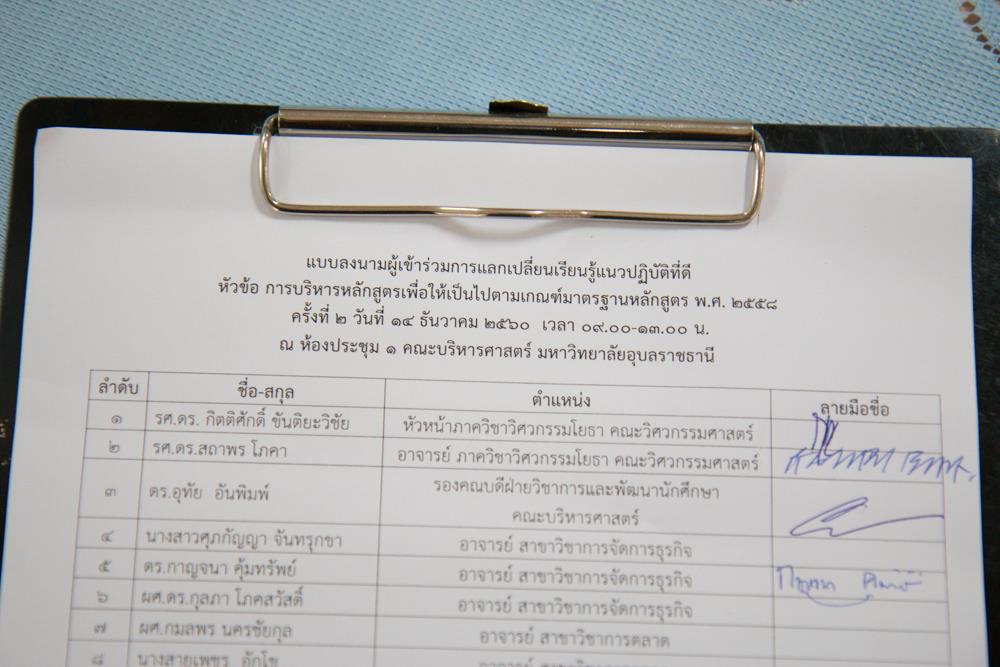 แบบลงนามผู้เข้าร่วมการแลกเปลี่ยนเรียนรู้แนวปฏิบัติที่ดี
หัวข้อ การบริหารหลักสูตรเพื่อให้เป็นไปตามเกณฑ์มาตรฐานหลักสูตร พ.ศ. ๒๕๕๘
ครั้งที่ ๒ วันที่ ๑๔ ธันวาคม ๒๕๖๐ เวลา ๐๙.๐๐-๑๓.๐๐ น.
ณ ห้องประชุม ๑ คณะบริหารศาสตร์ มหาวิทยาลัยอุบลราชธานี
ลำดับ ชื่อ-สกุล ตำแหน่ง ลายมือชื่อ
๑ รศ.ดร. กิตติศักดิ์ ขันติยะวิชัย หัวหน้าภาควิชาวิศวกรรมโยธา คณะวิศวกรรมศาสตร์
๒ รศ.ดร.สถาพร โภคา อาจารย์ ภาควิชาวิศวกรรมโยธา คณะวิศวกรรมศาสตร์
๓ ดร.อุทัย อันพิมพ์ รองคณบดีฝ่ายวิชาการและพัฒนานักศึกษา
คณะบริหารศาสตร์
๔ นางสาวศุภกัญญา จันทรุกขา อาจารย์ สาขาวิชาการจัดการธุรกิจ
๕ ดร.กาญจนา คุ้มทรัพย์ อาจารย์ สาขาวิชาการจัดการธุรกิจ
๖ ผศ.ดร.กุลภา โภคสวัสดิ์ อาจารย์ สาขาวิชาการจัดการธุรกิจ
๗ ผศ.กมลพร นครชัยกุล อาจารย์ สาขาวิชาการตลาด
๘ นางสายเพชร อักโข